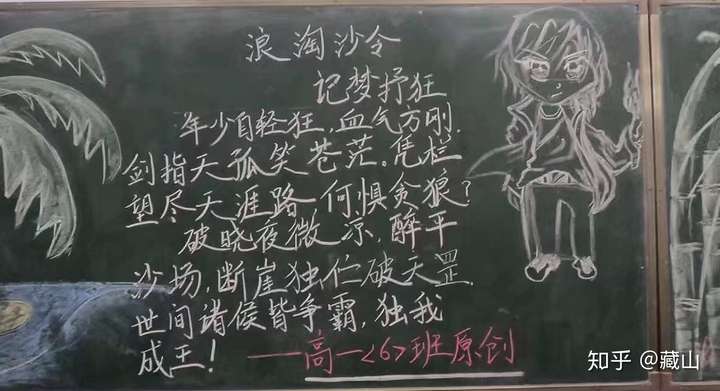 浪淘沙令
记梦抒狂
年少自轻狂,血气方刚.
剑指天孤笑苍茫。凭栏
望尽天涯路,何惧贪狼?
破晓夜微凉,醉平
沙场,断崖独伫破天罡.
世间诸侯皆争霸,独我
成王!
——高一<6>班原创
知乎 @藏山